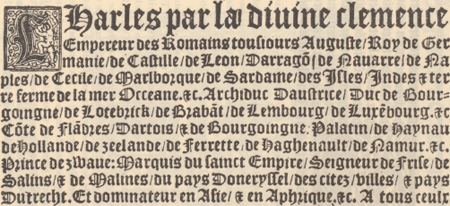 CHarles par la diuine clemence
Empereur des Romains tousiours Auguste/Roy de Ger
manie/de Castille/de Leon/Darragõ/de Nauarre/de Na
ples/de Cecile/de Marlborque/de Sardame/des Isles/Indes & ter
re ferme de la mer Occeane.&c. Archiduc Daustrice/Duc de Bour-
goingne/de Lotebrick/de Brabãt/de Lembourg/de Luxẽbourg.&c
Cõte de Flãdres/Dartois/& de Bourgoingne. Palatin/de Haynau
de Hollande/de zeelande/de Ferrette/de Haghenault/de Namur.&c.
Prince de zwaue: Marquis du sainct Empire/Seigneur de Frise/de
Salins/& de Malines/du pays Doneryssel/des citez/villes/& pays
Dutrecht. Et dominateur en Asie/& en Aphrique.&c. A tous ceulx